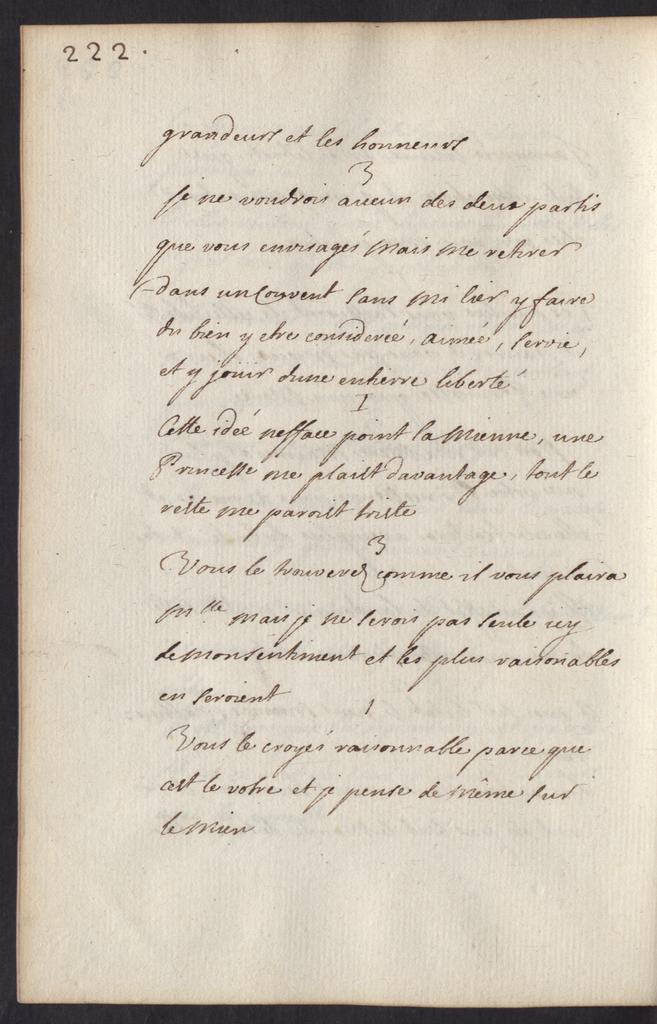 222.
grandeurs et les honneurs
3
je ne voudrois aucun des deux partis
que vous envisagés mais me retirer
dans un Couvent sans mi lier y faire
du bien y etre considereé, aimeé, servie,
et y jouir dune entierre liberté
I
Cette ideé nefface point la mienne, une
Princesse me plaist davantage, tout le
reste me paroist triste
3
Vous le trouverez comme il vous plaira
Mlle mais je ne serois pas seule icy
de mon sentiment et les plus raisonables
en seroient
1
Vous le croyés raisonnable parce que
cest le votre et je pense de même sur
le mien